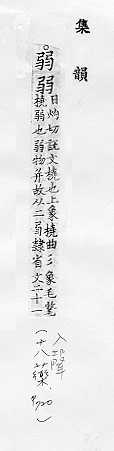 集韻
弱弱日灼切說文橈也上象橈曲彡象毛氂
橈弱也弱物并故从二隷省文二十一
入聲
(十八藥 p720)